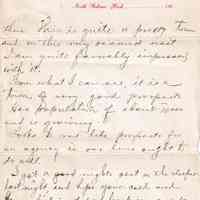 North Yakima, Wash. 190
here This is quite a pretty town
and on this my second visit
I am quite favorably impressed
with it.
From what I can see, it is a
town of very good prospects
Has population of about 7000
and is growing.
Looks to me like prospects for
an agency in our line ought to
do well.
I got a good nights rest in the sleeper
last night, and hope you and